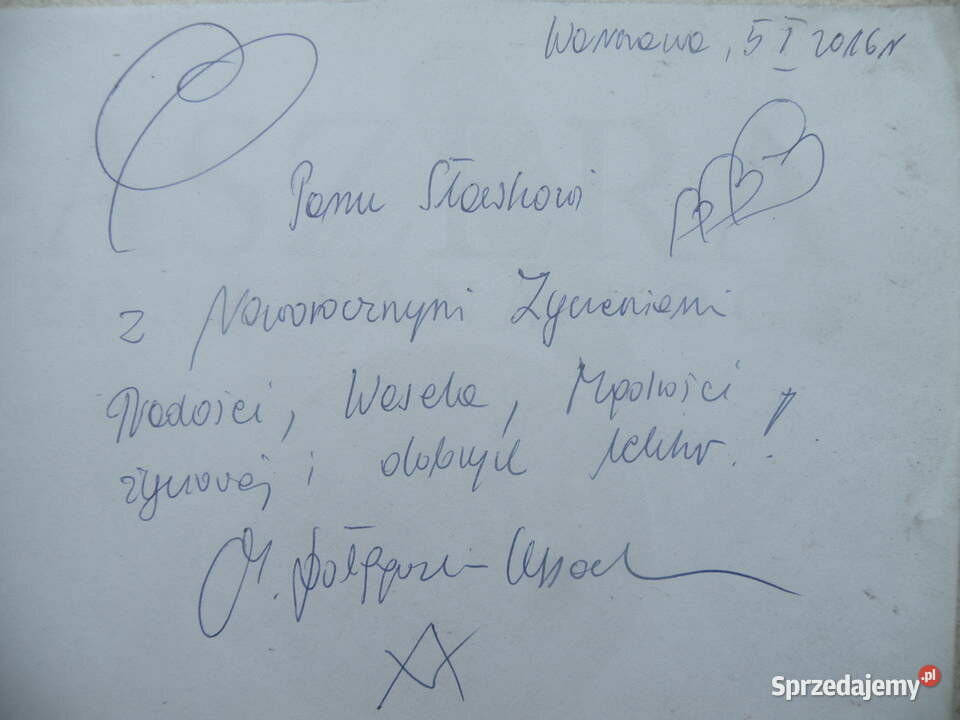 Warszawa, 5 I 2016 r
Panu Sławkowi
z Noworocznymi Życzeniami
Radości, Wesela, Mądrości
życiowej i dobrych lektur!
M.
Sprzedajemy.pl